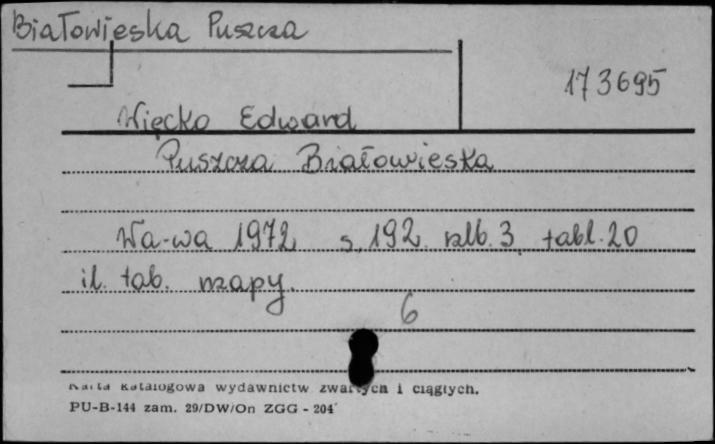 Białowieska Puszcza
173695
Więcko Edward
Puszcza Białowieska
Wa-wa 1972 s. 192 nlb. 3 tabl. 20
il. tab. mapy.
6
Karta katalogowa wydawnictw zwartych i ciągłych.
PU-B-144 zam. 29/DW/On ZGG - 204